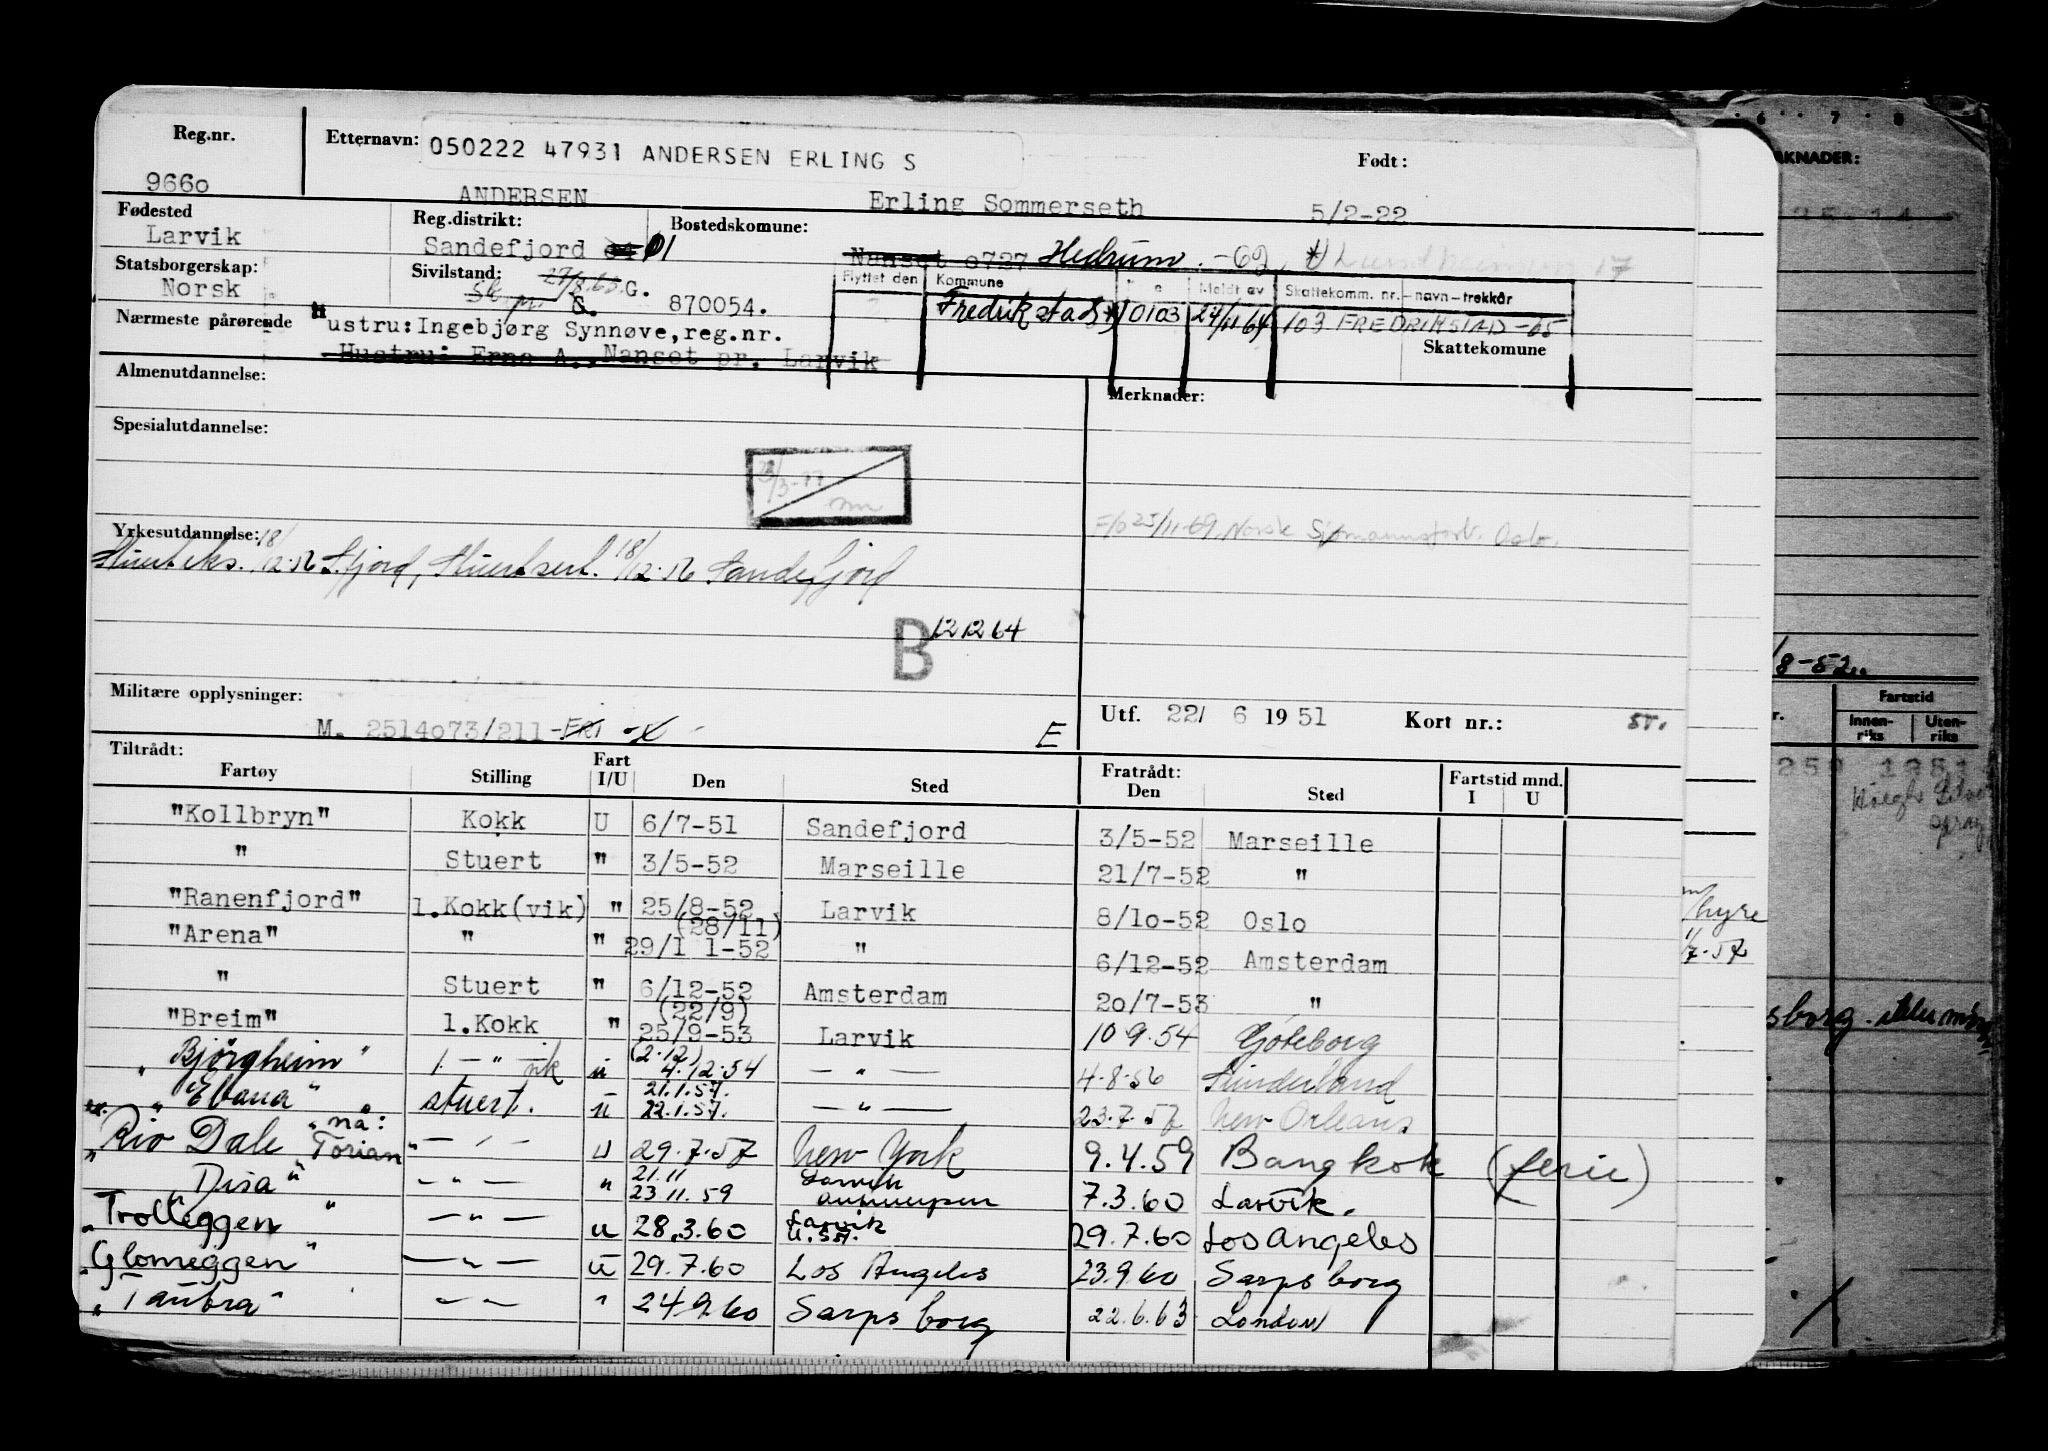 Reg.nr. Etternavn: 050222 47931 ANDERSEN ERLING S Født:
9660 ANDERSEN Erling Sommerseth 5/2-22
Fødested Reg.distrikt: Bostedskomune:
Larvik Sandefjord 01 Nanset 0727 Hedrum -69
Statsborgerskap: Sivilstand: 27/8.63. G.
Norsk 870054.
Flyttet den Kommune Meldt av Skattekomm. nr.-navn-trekkår
Fredrikstad 0103 24/11 64 103 FREDRIKSTAD-05
Nærmeste pårørende Hustru: Ingebjørg Synnøve, reg.nr.
Hustru: Erna A., Nanset pr. Larvik Skattekomune
Almenutdannelse: Merknader:
Spesialutdannelse:
Yrkesutdannelse:
F/o 25/11-69 Norsk Sjømannsforb. Oslo.
Stuerteks. 18/12-56 S.fjord, Stuertsert. 18/12-56 Sandefjord
B 12 12 64
Militære opplysninger:
M. 2514073/211 E
Utf. 22/ 6 1951 Kort nr.: 5r.
Tiltrådt: Fratrådt: Fartstid mnd.
Fartøy Stilling Fart I/U Den Sted Den Sted I U
"Kollbryn" Kokk U 6/7-51 Sandefjord 3/5-52 Marseille
" Stuert " 3/5-52 Marseille 21/7-52 "
"Ranenfjord" 1.Kokk(vik) " 25/8-52 Larvik 8/10-52 Oslo
"Arena" " " (28/11) 29/1 1-52 " 6/12-52 Amsterdam
" Stuert " 6/12-52 Amsterdam 20/7-53 "
"Breim" 1.Kokk " (22/9) 25/9-53 Larvik 10 9.54 Göteborg
"Bjørgheim" 1. — " — vik u (2.12) 4.12.54 — " — 4.8.56 Sunderland
"Ebana" stuert. u 21.1.57. 22.1.57. — " — 23.7.57 New Orleans
ex. "Rio Dale" nå: "Torian" — " — U 29.7.57 New York 9.4.59 Bangkok (ferie)
"Disa" — " — " 21.11 23 11.59 Larvik Antwerpen 7.3.60 Larvik.
"Trolleggen" — " — u 28.3.60 Larvik U.S.A. 29.7.60 Los Angeles
"Glomeggen" — " — u 29.7.60 Los Angeles 23.9.60 Sarpsborg
"Taubra" — " — " 24 9.60 Sarpsborg 22.6.63 London
6 7 8
AKNADER:
/8-52.
Fartstid
Innen-riks Uten-riks
/hyre